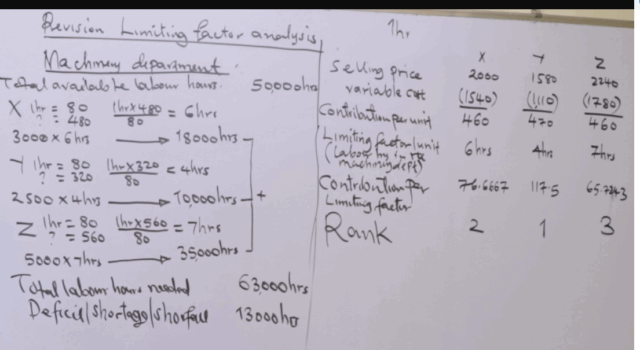 Revision Limiting factor analysis
Machinery department
Total available labour hours. 50,000hrs
X 1hr = 80 1hr x 480 = 6hrs
? = 480 80
3000 x 6hrs → 18000hrs
Y 1hr = 80 1hr x 320 = 4hrs
? = 320 80
2500 x 4hrs → 10,000hrs +
Z 1hr = 80 1hr x 560 = 7hrs
? = 560 80
5000 x 7hrs → 35000hrs
Total labour hours needed 63,000hrs
Deficit/shortage/shortfall 13000hrs
1hr
X Y Z
Selling price 2000 1580 2240
variable cost (1540) (1,110) (1780)
Contribution per unit 460 470 460
Limiting factor/unit 6hrs 4hrs 7hrs
(labour hrs in the
machinery dept)
Contribution per 76.6667 117.5 65.7143
Limiting factor
Rank 2 1 3